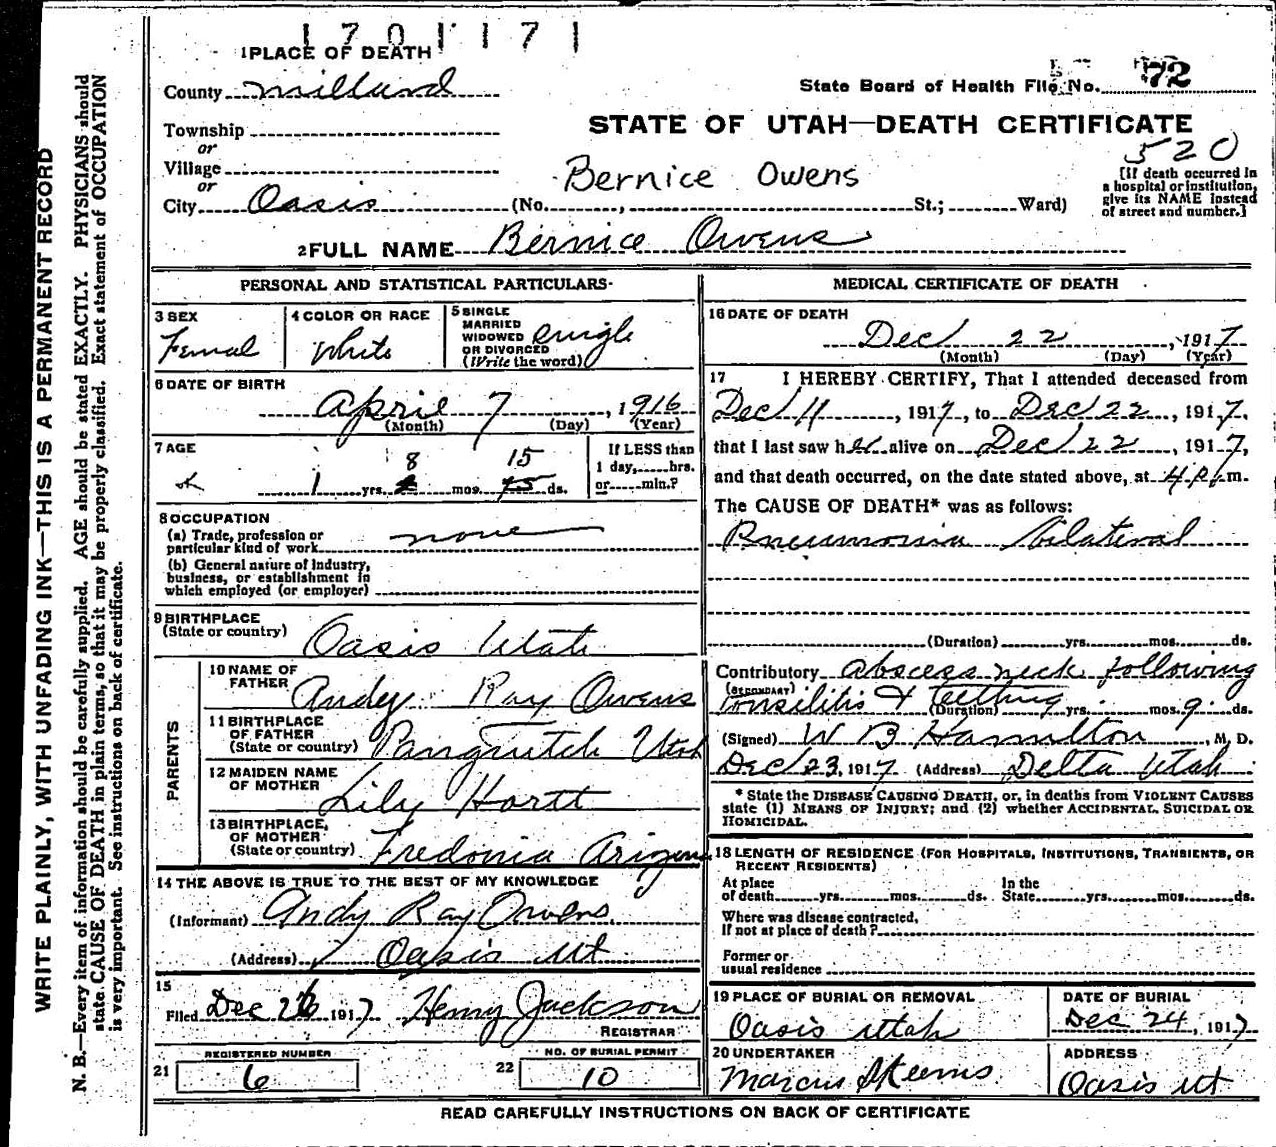 1701171
1 PLACE OF DEATH
County Millard
State Board of Health File No. 72
Township
STATE OF UTAH—DEATH CERTIFICATE
or
Village
520
or
Bernice Owens
[If death occurred in a hospital or institution, give its NAME instead of street and number.]
City Oasis (No. , St.; Ward)
2 FULL NAME Bernice Owens
PERSONAL AND STATISTICAL PARTICULARS
3 SEX
Femal
4 COLOR OR RACE
White
5 SINGLE
MARRIED
WIDOWED
OR DIVORCED
(Write the word)
single
6 DATE OF BIRTH
April 7, 1916
(Month) (Day) (Year)
7 AGE
8 15
1 yrs. mos. 75 ds.
If LESS than
1 day, hrs.
or min.?
8 OCCUPATION
(a) Trade, profession or
particular kind of work none
(b) General nature of industry,
business, or establishment in
which employed (or employer)
9 BIRTHPLACE
(State or country) Oasis Utah
PARENTS
10 NAME OF
FATHER Andy Ray Owens
11 BIRTHPLACE
OF FATHER
(State or country) Panguitch Utah
12 MAIDEN NAME
OF MOTHER Lily Hortt
13 BIRTHPLACE,
OF MOTHER
(State or country) Fredonia Arizona
14 THE ABOVE IS TRUE TO THE BEST OF MY KNOWLEDGE
(Informant) Andy Ray Owens
(Address) Oasis Ut
15
Filed Dec 26 1917 Henry Jackson
REGISTRAR
REGISTERED NUMBER
21 6
NO. OF BURIAL PERMIT
22 10
MEDICAL CERTIFICATE OF DEATH
16 DATE OF DEATH
Dec 22, 1917
(Month) (Day) (Year)
17 I HEREBY CERTIFY, That I attended deceased from
Dec 11, 1917, to Dec 22, 1917,
that I last saw her alive on Dec 22, 1917,
and that death occurred, on the date stated above, at 4 P. m.
The CAUSE OF DEATH* was as follows:
Pneumonia bilateral
(Duration) yrs. mos. ds.
Contributory abscess neck following
(SECONDARY) tonsilitis & teething
(Duration) yrs. mos. 9 ds.
(Signed) W B Hamilton, M. D.
Dec 23, 1917 (Address) Delta Utah
* State the DISEASE CAUSING DEATH, or, in deaths from VIOLENT CAUSES
state (1) MEANS OF INJURY; and (2) whether ACCIDENTAL, SUICIDAL OR
HOMICIDAL.
18 LENGTH OF RESIDENCE (FOR HOSPITALS, INSTITUTIONS, TRANSIENTS, OR
RECENT RESIDENTS)
At place
of death yrs. mos. ds.
In the
State yrs. mos. ds.
Where was disease contracted,
If not at place of death?
Former or
usual residence
19 PLACE OF BURIAL OR REMOVAL
Oasis Utah
DATE OF BURIAL
Dec 24, 1917
20 UNDERTAKER
Marcus Skeems
ADDRESS
Oasis Ut
READ CAREFULLY INSTRUCTIONS ON BACK OF CERTIFICATE
WRITE PLAINLY, WITH UNFADING INK—THIS IS A PERMANENT RECORD
N. B.—Every item of information should be carefully supplied. AGE should be stated EXACTLY. PHYSICIANS should
state CAUSE OF DEATH in plain terms, so that it may be properly classified. Exact statement of OCCUPATION
is very important. See instructions on back of certificate.